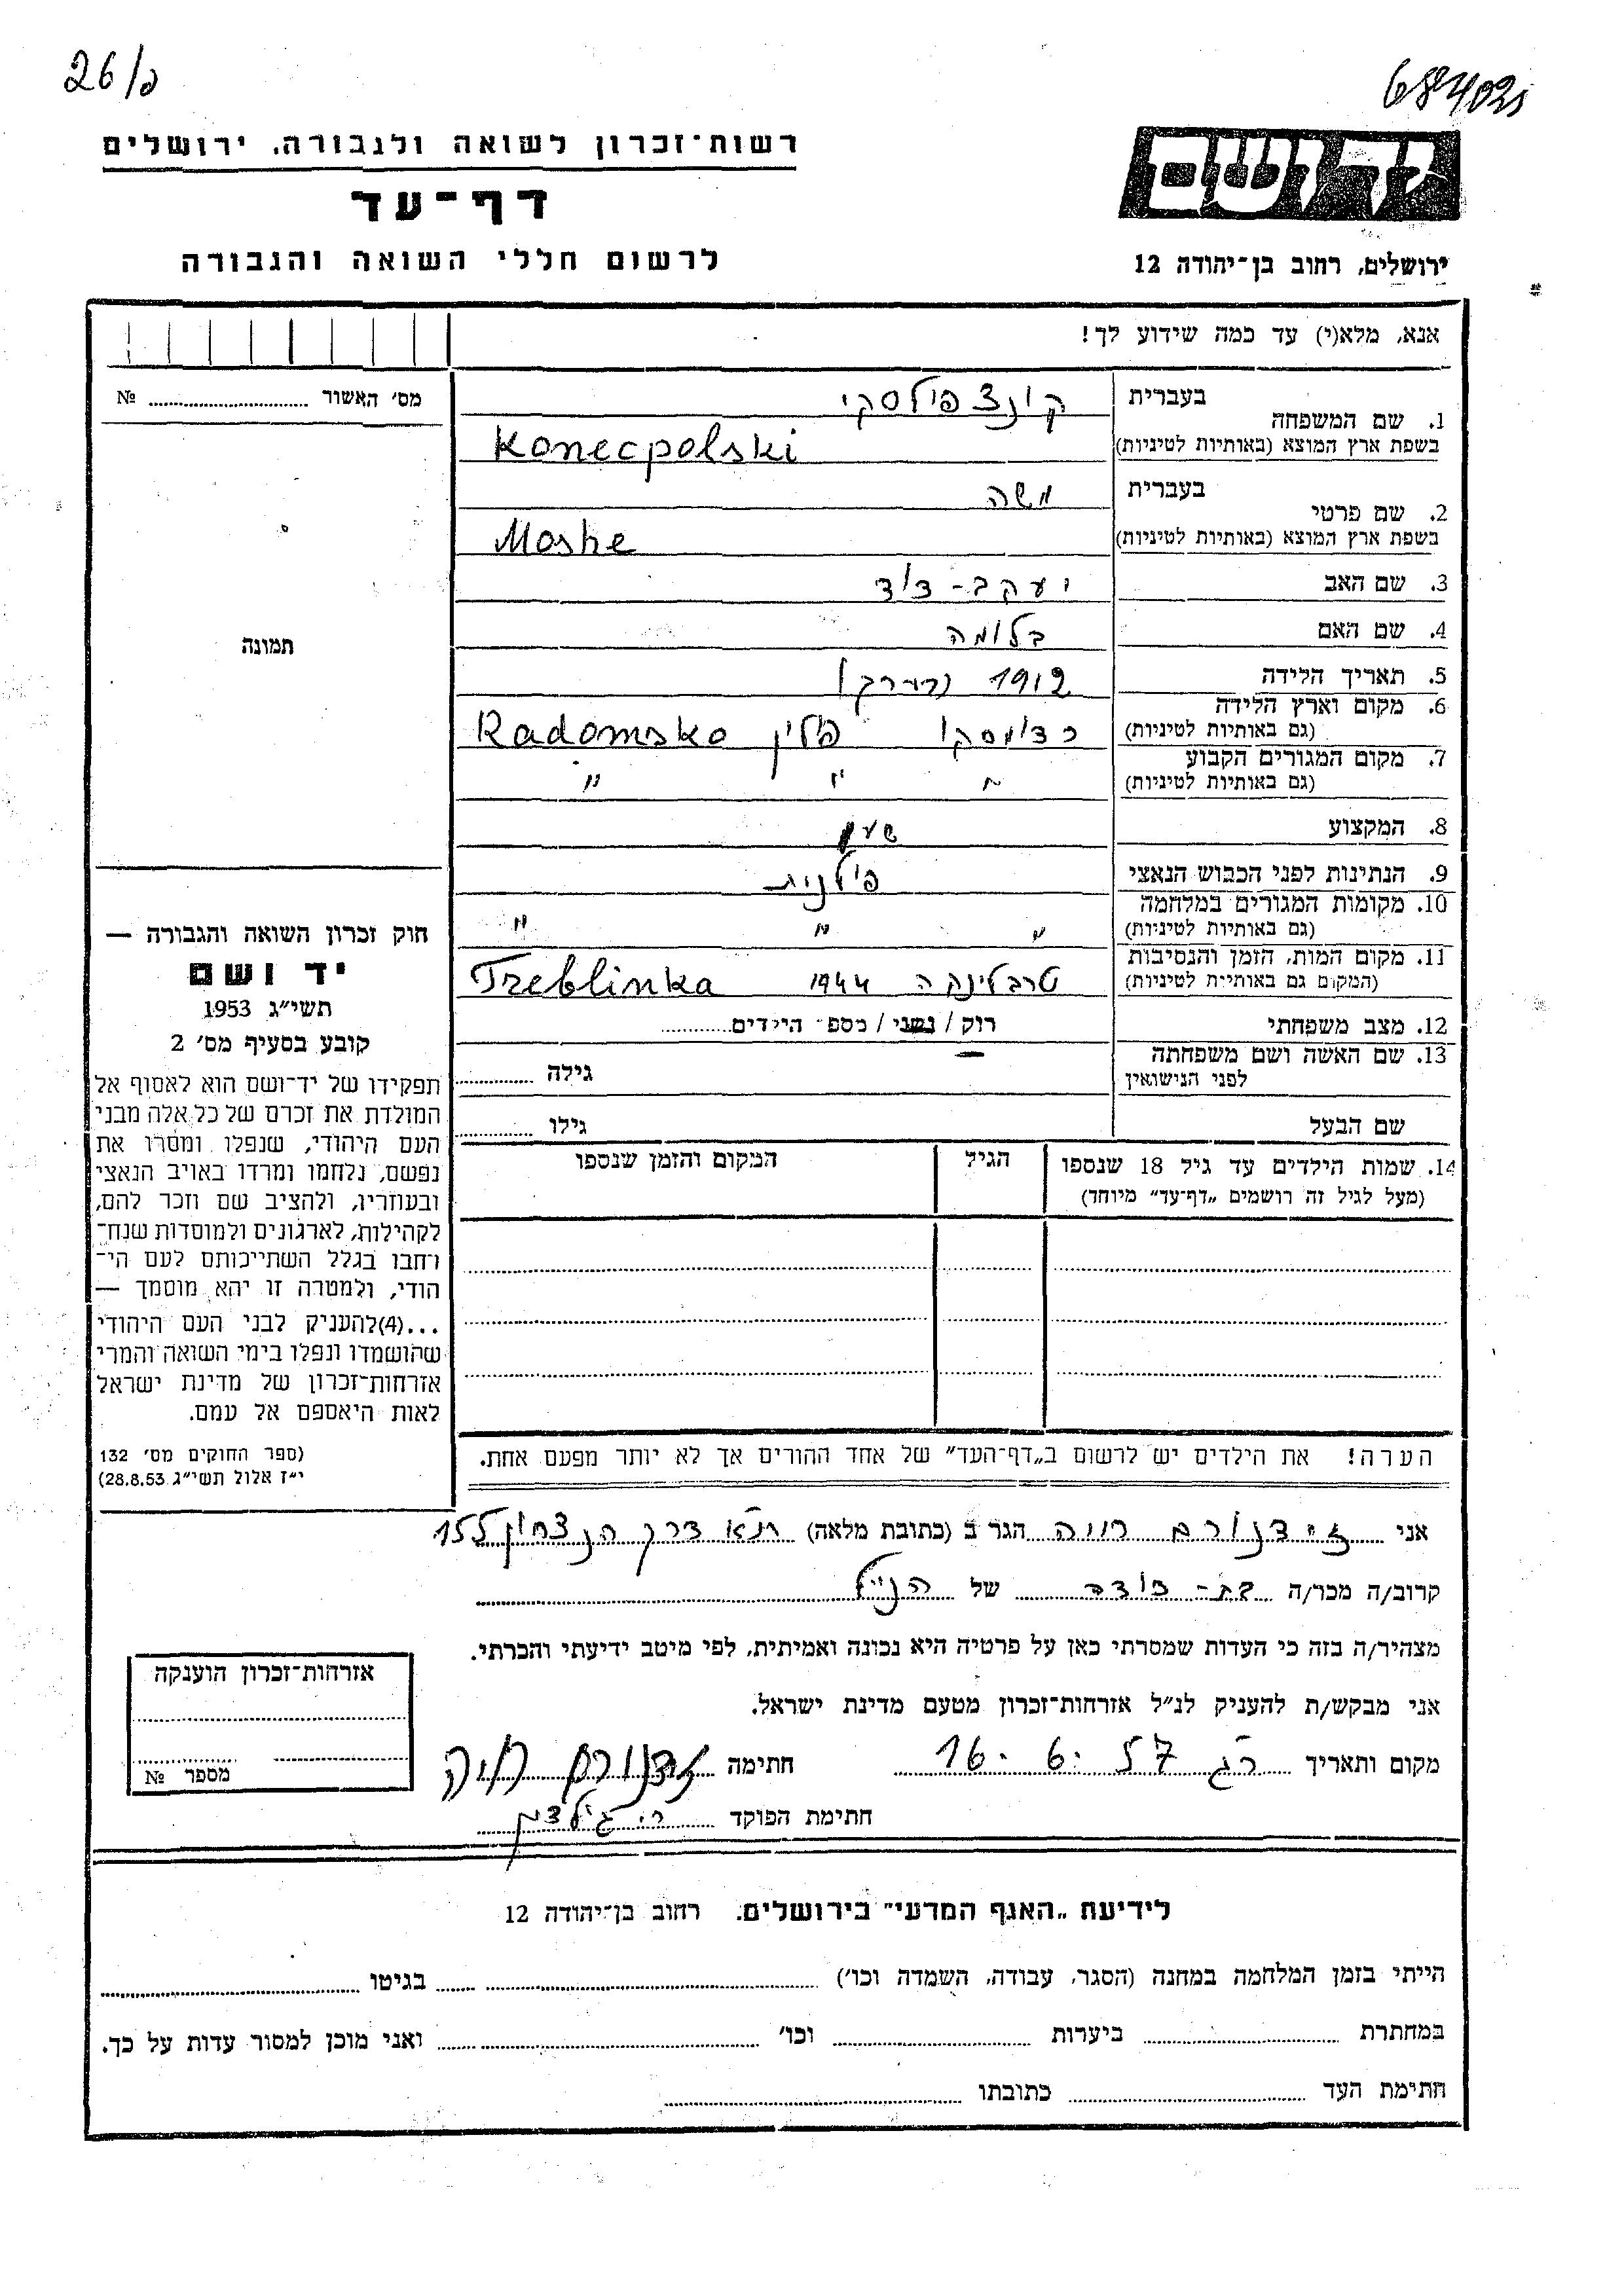 26/ב
684025
רשות־זכרון לשואה ולגבורה. ירושלים
יד ושם
דף־עד
לרשום חללי השואה והגבורה
ירושלים, רחוב בן־יהודה 12
אנא, מלא(י) עד כמה שידוע לך!
מס׳ האשור № 
1. שם המשפחה בעברית קונצפולסקי
בשפת ארץ המוצא (באותיות לטיניות) Konecpolski
2. שם פרטי בעברית משה
בשפת ארץ המוצא (באותיות לטיניות) Moshe
3. שם האב יעקב-דוד
4. שם האם בלומה
תמונה
5. תאריך הלידה 1912 (בערך)
6. מקום וארץ הלידה (גם באותיות לטיניות) רדומסקו פולין Radomsko
7. מקום המגורים הקבוע (גם באותיות לטיניות) " " "
8. המקצוע
9. הנתינות לפני הכבוש הנאצי פולנית
10. מקומות המגורים במלחמה (גם באותיות לטיניות) " " "
11. מקום המות, הזמן והנסיבות (המקום גם באותיות לטיניות) טרבלינקה 1944 Treblinka
12. מצב משפחתי רוק / נשוי / מספר הילדים
13. שם האשה ושם משפחתה לפני הנישואין — גילה
שם הבעל גילו
14. שמות הילדים עד גיל 18 שנספו הגיל המקום והזמן שנספו
(מעל לגיל זה רושמים „דף־עד” מיוחד)
חוק זכרון השואה והגבורה —
יד ושם
תשי״ג 1953
קובע בסעיף מס׳ 2
תפקידו של יד־ושם הוא לאסוף אל
המולדת את זכרם של כל אלה מבני
העם היהודי, שנפלו ומסרו את
נפשם, נלחמו ומרדו באויב הנאצי
ובעוזריו, ולהציב שם וזכר להם,
לקהילות, לארגונים ולמוסדות שנח־
רחבו בגלל השתייכותם לעם הי־
הודי, ולמטרה זו יהא מוסמך —
...(4)להעניק לבני העם היהודי
שהושמדו ונפלו בימי השואה והמרי
אזרחות־זכרון של מדינת ישראל
לאות היאספם אל עמם.
(ספר החוקים מס׳ 132
י״ז אלול תשי״ג 28.8.53)
הערה! את הילדים יש לרשום ב„דף־העד” של אחד ההורים אך לא יותר מפעם אחת.
אני זידנורם חיה הגר ב (כתובת מלאה) ת״א דרך הנצחון 155
קרוב/ה מכר/ה בת-דודה של הנ״ל
מצהיר/ה בזה כי העדות שמסרתי כאן על פרטיה היא נכונה ואמיתית, לפי מיטב ידיעתי והכרתי.
אני מבקש/ת להעניק לנ״ל אזרחות־זכרון מטעם מדינת ישראל.
מקום ותאריך רג 16.6.57 חתימה זידנורם חיה
חתימת הפוקד
אזרחות־זכרון הוענקה
מספר №
לידיעת „האגף המדעי” בירושלים. רחוב בן־יהודה 12
הייתי בזמן המלחמה במחנה (הסגר, עבודה, השמדה וכו׳) בגיטו
במחתרת ביערות וכו׳ ואני מוכן למסור עדות על כך.
חתימת העד כתובתו